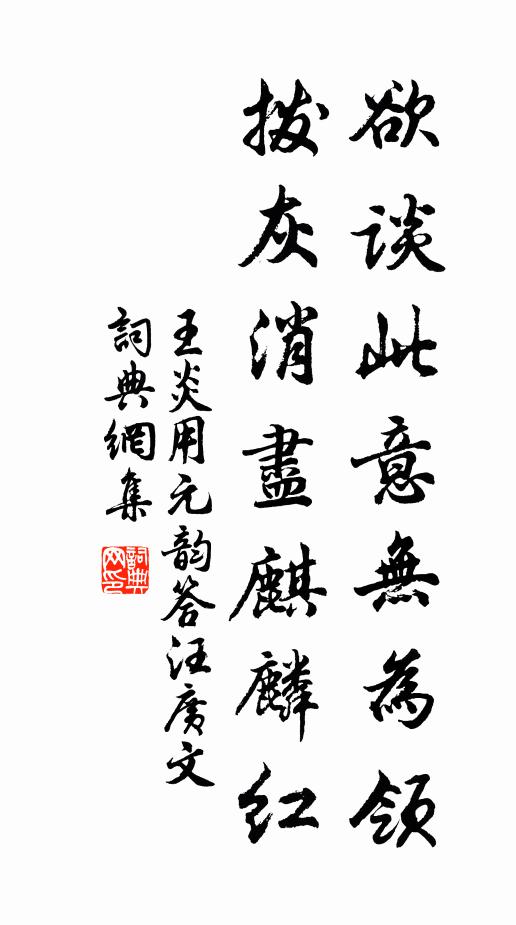 欲談此意無為領
撥灰消盡麒麟紅
王炎用元韵答汪廣文
詞典網集
詞典网印